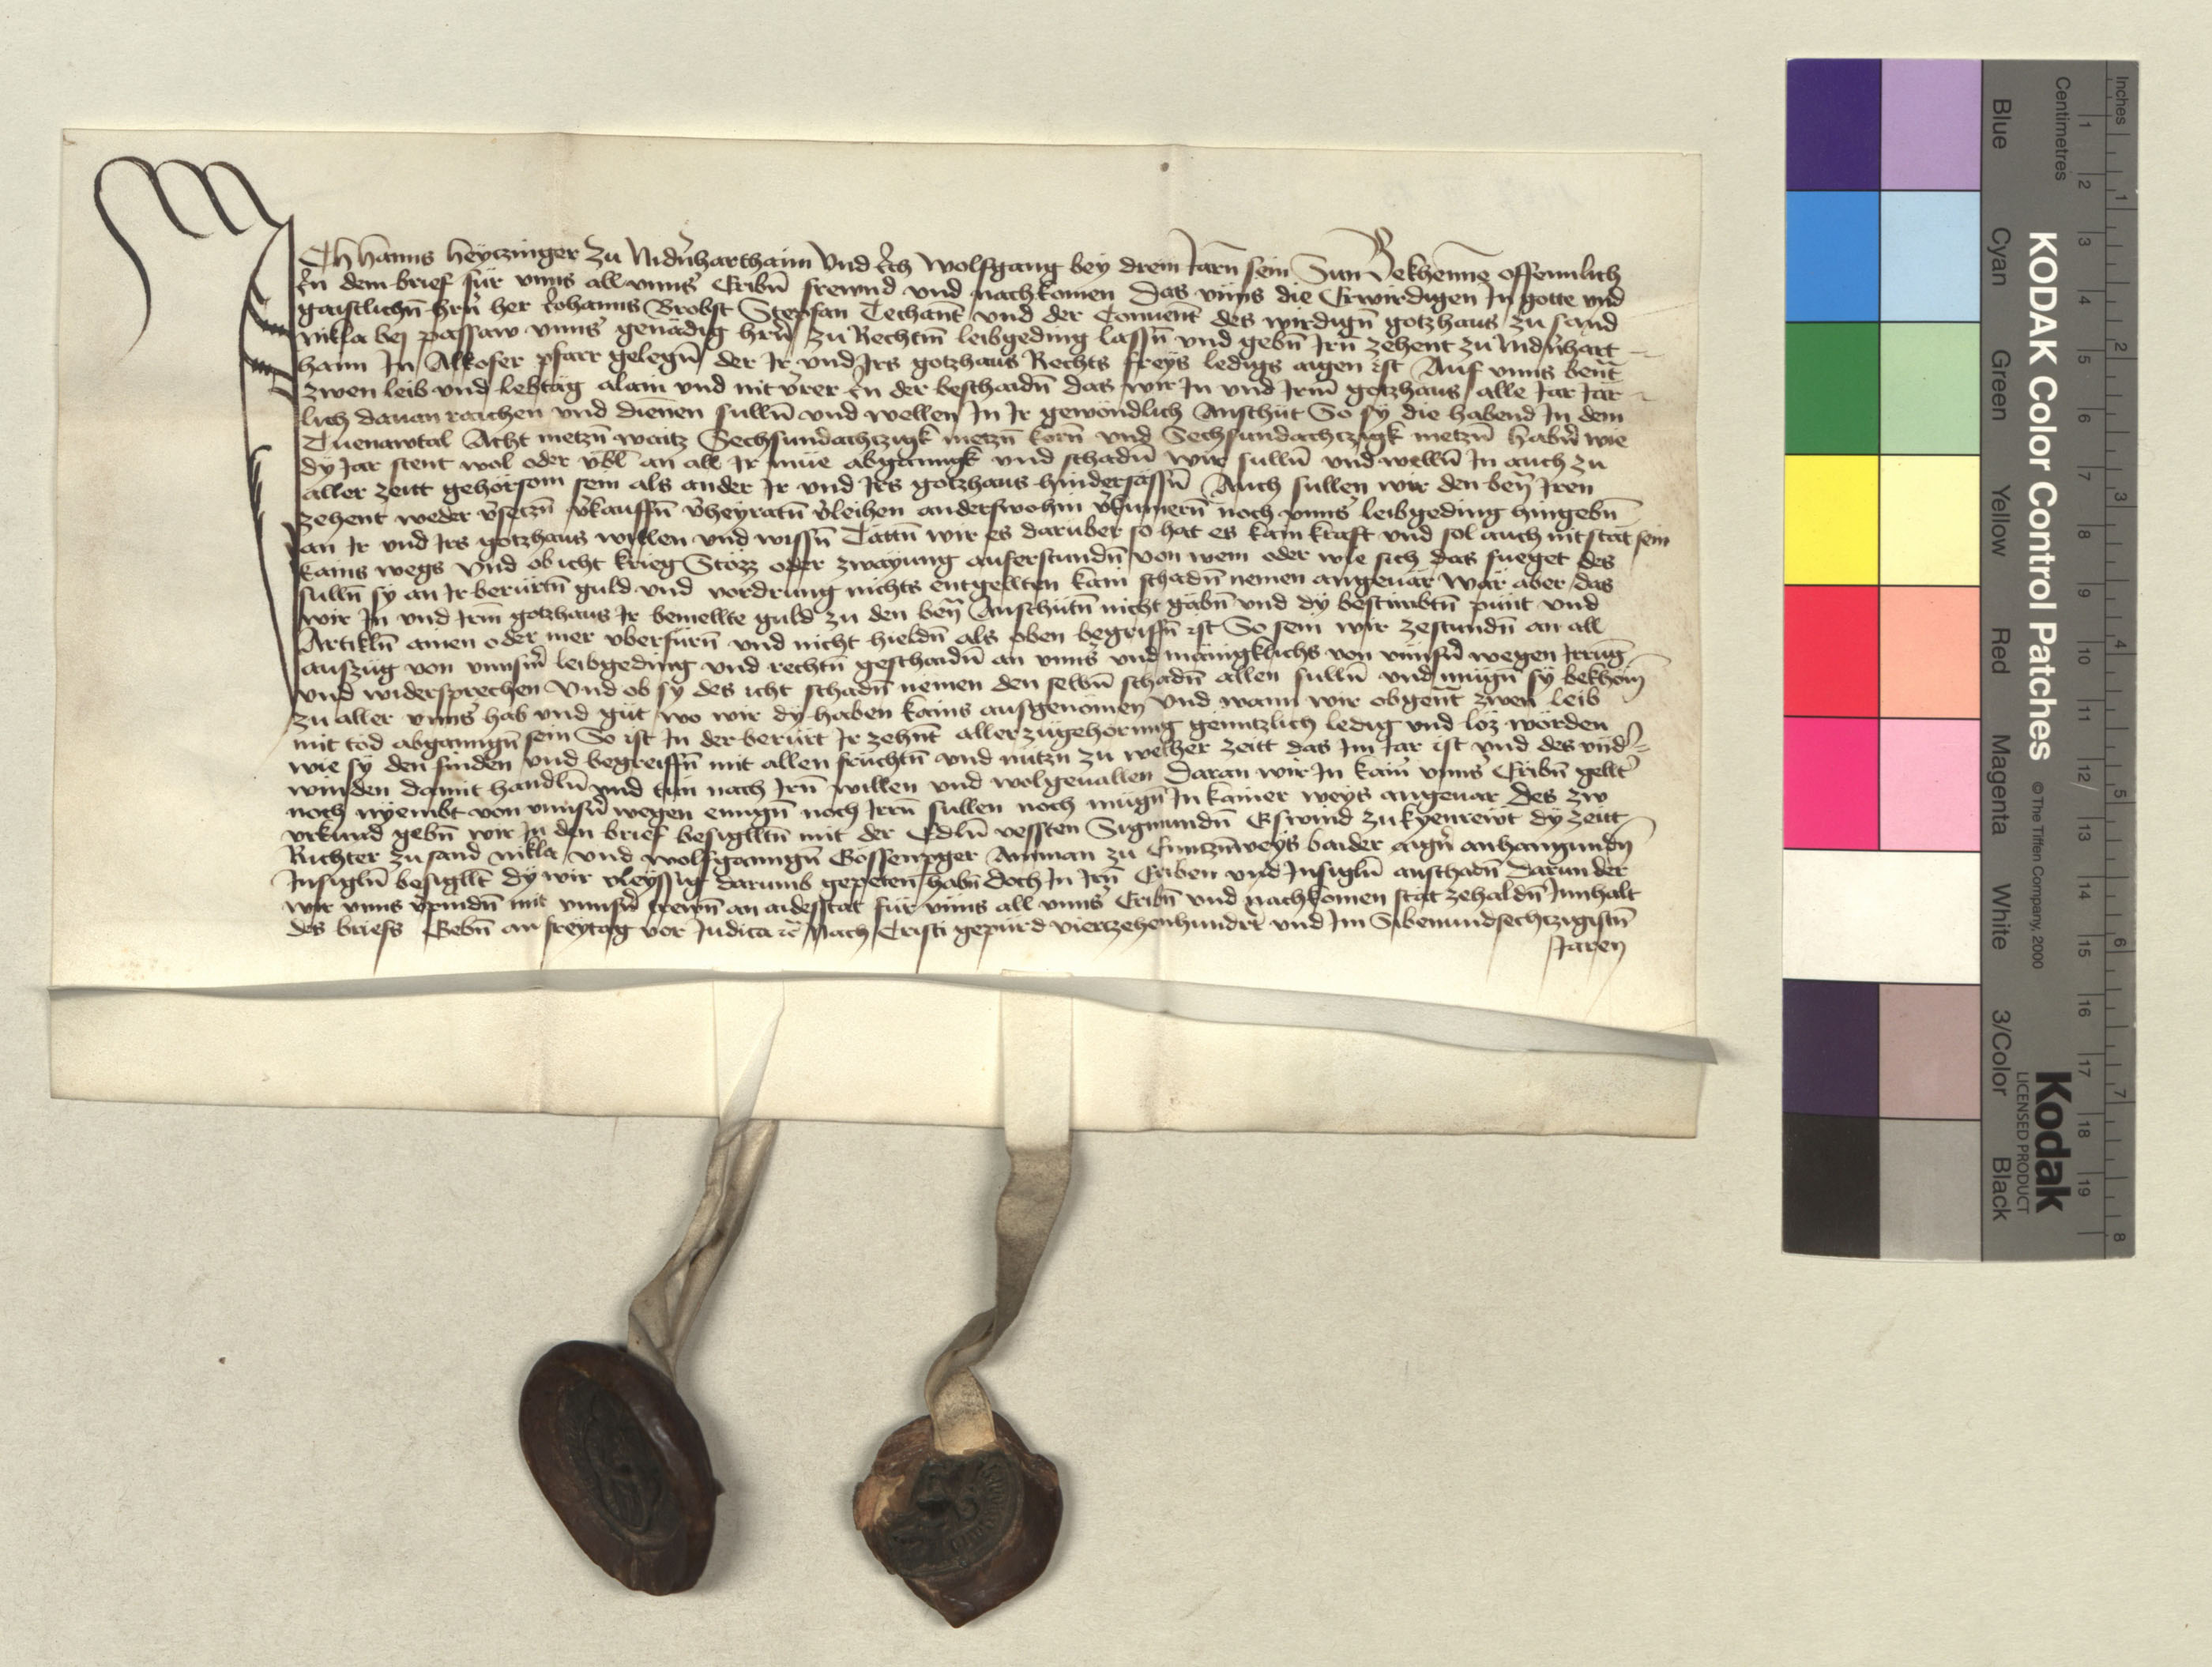 Ich Hanns Heytzinger zu Nidernharthaim Und ich Wolfgang bey drein Jarn sein Sun Bekhennen offennlich
in dem brief für vnns all vnns Eribn frewnd vnd nachkomen Das vnns die Erwirdigen In gotte vnd
gaistlichn hrn her Johanns Brobst Steffan Techant vnd der Convent des wirdign gotzhaus zu sand
Nikla bej passaw vnns genadig hrn zu Rechtm leibgeding lassn vnd gebn Irn zehent zu Nidnhart
haim In Alkofer pfarr gelegn der Ir vnd Irs gotzhaus Rechts freys ledigs aigen ist Auf vnns bent
zwen leib vnd lebtäg alain vnd nit vrer in der beschaidn das wir In vnd Irm gotzhaus alle Jar Jär
lich dauan raichen vnd dienen sulln vnd wellen In Ir gewöndlich Anschüt So sy die habend In dem
Tuenawtal Acht metzn waitz Sechsundachtzigk metzn korn vnd Sechsundachtzigk metzn habn wie
dy Jar stent wol oder vbl an all Ir müe abganngk vnd schadn wir sulln vnd welln In auch zu
aller zeitt gehorsom sein als ander Ir vnd Irs gotzhaus hindersässn Auch sullen wir den ben Iren
zehent weder vsetzn vkauffn vheyratn vleihen anderswohin vkumern noch vnns leibgeding hingebn
an Ir vnd Irs gotzhaus willen vnd wissn Tättn wir es darüber so hat es kain kraft vnd sol auch nit stät sein
kains wegs Vnd ob icht krieg Stözz oder zwayung auferstundn von wem oder wie sich das fueget des
sulln sy an Ir berürtn guld vnd vordrung nichts entgellten kain schadn nemen angeuär wär aber das
wir In vnd Irm gotzhaus Ir bemellte guld zu den ben Anschütn nicht gäbn vnd dy bestimbtn punt vnd
Artikln ainen oder mer vberfürn vnd nicht hieldn als oben begriffn ist So sein wir zestundn an all
auszug von vnnsm leibgeding vnd rechtn geschaidn an vnns vnd mänigklichs von vnnsn wegen Irrung
vnd widersprechen Vnd ob sy des icht schadn nemen den selbn schadn allen sulln vnd mügn sy bekhöm
zu aller vnns hab vnd güt wo wir dy haben kains ausgenomen Vnd wann wir obgent zwen leib
mit tod abganngn sein So ist In der berürt Ir zehnt aller zugehorung genntzlich ledig vnd löz worden
wie sy den finden vnd begreiffn mit allen früchtn vnd nützn zu welher zeitt das Im Jar ist vnd des vnd
winden damit handln vnd tun nach Irn willen vnd wolgeuallen Daran wir In kain vnns Eribn gellt
noch nyembt von vnnsn wegen enngn noch Irrn sullen noch mügn In kainer weys angeuar Des zw
vrkund gebn wir In den brief besiglltn mit der Edln vessten Sigmundn Eswind zu kyenrewt dy zeitt
Richter zu sand nikla vnd wolfganngn Gössennger Amman zu Cuntznweys baider aign anhanngundn
Insigln besigllt dy wir vleyssig darumb gepeten habn doch In Irn Eriben vnd Insigln anschadn Darunder
wir vnns vpindn mit vnnsn trewn an aidesstat für vnns all vnns Eribn vnd nachkomen stät zehaldn Innhalt
des briefs Gebn an freytag vor Judica etc Nach Cristi gepurd vierzehenhundrt vnd Im Sibenundsechtzigistn
Jaren
Inches
Centimetres
KODAK Color Control Patches
© The Tiffen Company, 2000
Kodak
LICENSED PRODUCT
Blue
Cyan
Green
Yellow
Red
Magenta
White
3/Color
Black
1 2 3 4 5 6 7 8 9 10 11 12 13 14 15 16 17 18 19
1 2 3 4 5 6 7 8